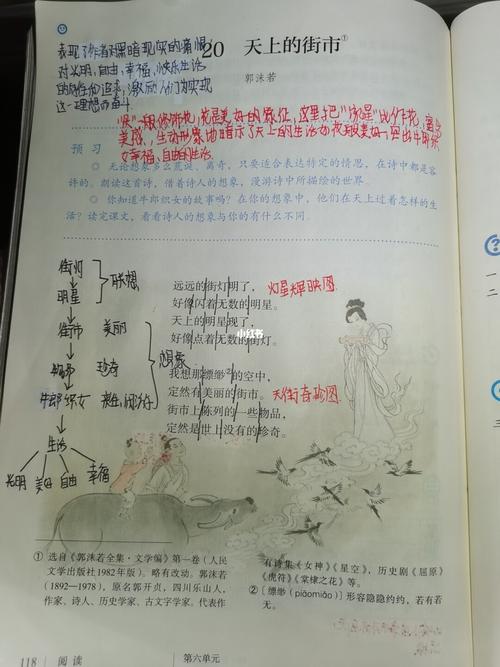 ①
表现了作者对黑暗现实的痛恨
对光明,自由,幸福,快乐生活
的向往和追求,激励人们为实现
这一理想而奋斗.
20 天上的街市①
郭沫若
预习
○ 无论想象多么荒诞、离奇,只要适合表达特定的情思,在诗中都是容
许的。朗读这首诗,借着诗人的想象,漫游诗中所描绘的世界。
○ 你知道牛郎织女的故事吗?在你的想象中,他们在天上过着怎样的生
活?读完课文,看看诗人的想象与你的有什么不同。
街灯
明星
联想
街市 美丽
物品 珍奇
想象
牛郎织女
生活
光明 美好 自由 幸福
远远的街灯明了,
好像闪着无数的明星。
天上的明星现了,
好像点着无数的街灯。
灯星辉映图
小红书
我想那缥缈②的空中,
定然有美丽的街市。
街市上陈列的一些物品,
定然是世上没有的珍奇。
天街奇珍图
① 选自《郭沫若全集·文学编》第一卷(人民
文学出版社1982年版)。略有改动。郭沫若
(1892—1978),原名郭开贞,四川乐山人,
作家、诗人、历史学家、古文字学家。代表作
有诗集《女神》《星空》,历史剧《屈原》
《虎符》《棠棣之花》等。
② 〔缥缈(piāomiǎo)〕形容隐隐约约,若有若
无。
118 阅读 第六单元